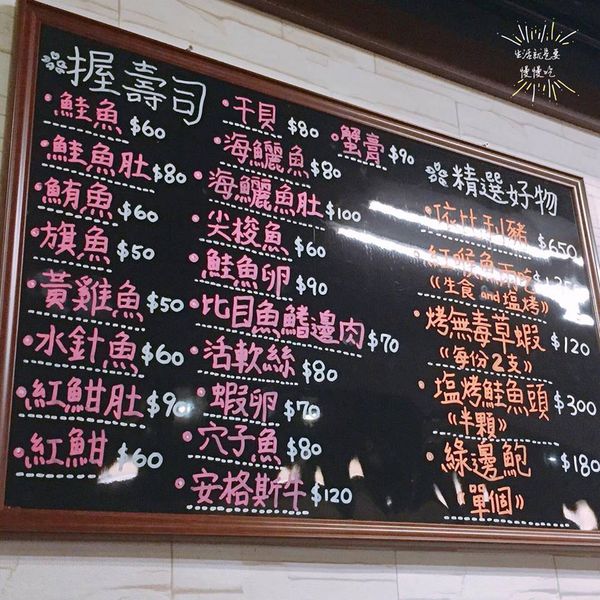 生活就是要
慢慢吃
握壽司
鮭魚 $60
鮭魚肚 $80
鮪魚 $60
旗魚 $50
黃雞魚 $50
水針魚 $60
紅魽肚 $90
紅魽 $60
干貝 $80
海鱺魚 $80
海鱺魚肚 $100
尖梭魚 $60
鮭魚卵 $90
比目魚鰭邊肉 $70
活軟絲 $80
蝦卵 $70
穴子魚 $80
安格斯牛 $120
蟹膏 $90
精選好物
依比利豬 $650
紅喉魚兩吃
《生食 and 塩烤》
烤無毒草蝦 $120
《每份2支》
塩烤鮭魚頭 $300
《半顆》
綠邊鮑 $180
單個》